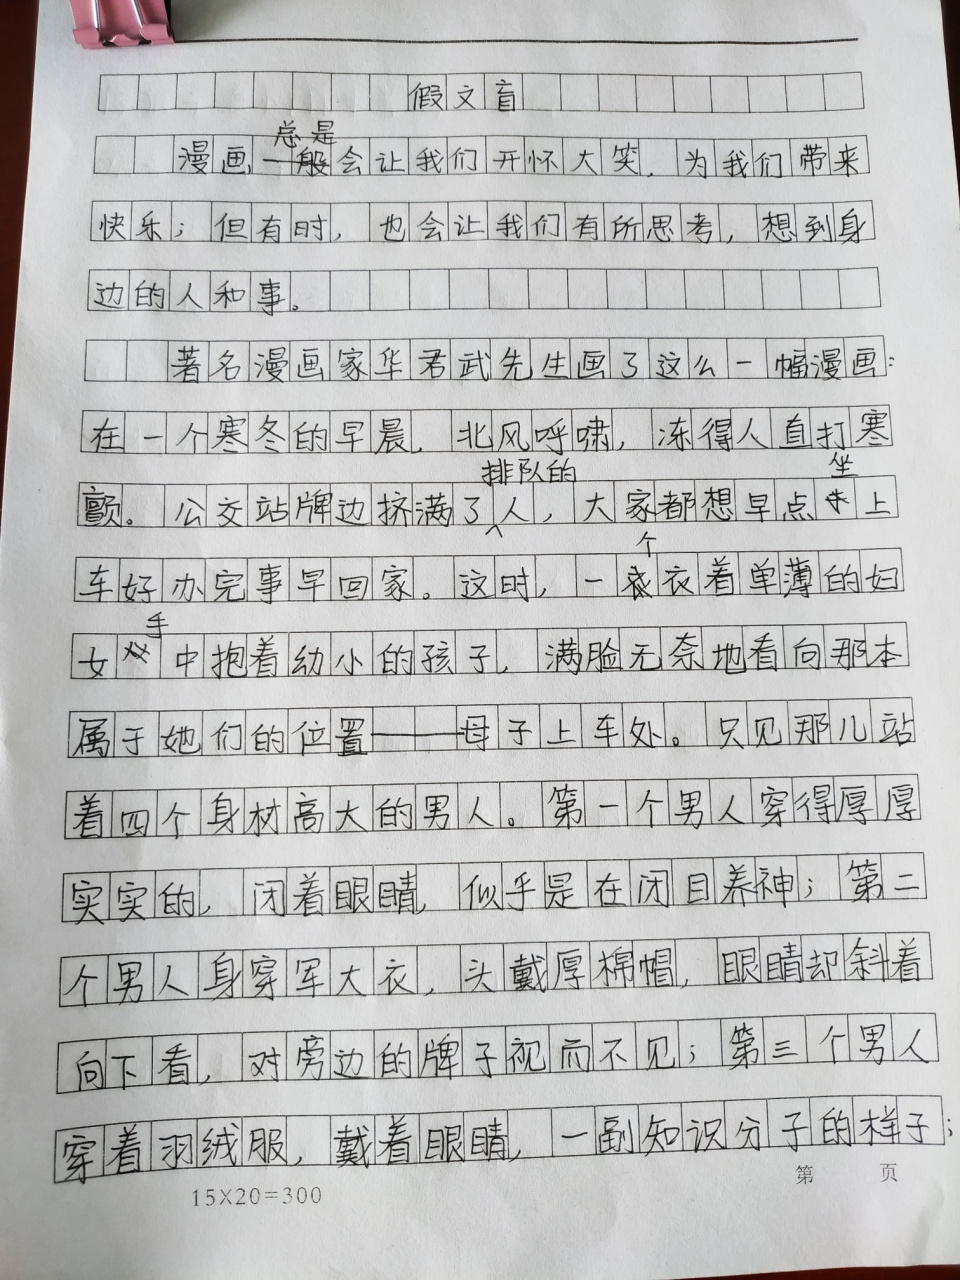 假文盲
漫画总是会让我们开怀大笑，为我们带来
快乐；但有时，也会让我们有所思考，想到身
边的人和事。
著名漫画家华君武先生画了这么一幅漫画：
在一个寒冬的早晨，北风呼啸，冻得人直打寒
颤。公交站牌边挤满了排队的人，大家都想早点坐上
车好办完事早回家。这时，一个衣着单薄的妇
女手中抱着幼小的孩子，满脸无奈地看向那本
属于她们的位置——母子上车处。只见那儿站
着四个身材高大的男人。第一个男人穿得厚厚
实实的，闭着眼睛，似乎是在闭目养神；第二
个男人身穿军大衣，头戴厚棉帽，眼睛却斜着
向下看，对旁边的牌子视而不见；第三个男人
穿着羽绒服，戴着眼睛，一副知识分子的样子；
第 页
15X20=300